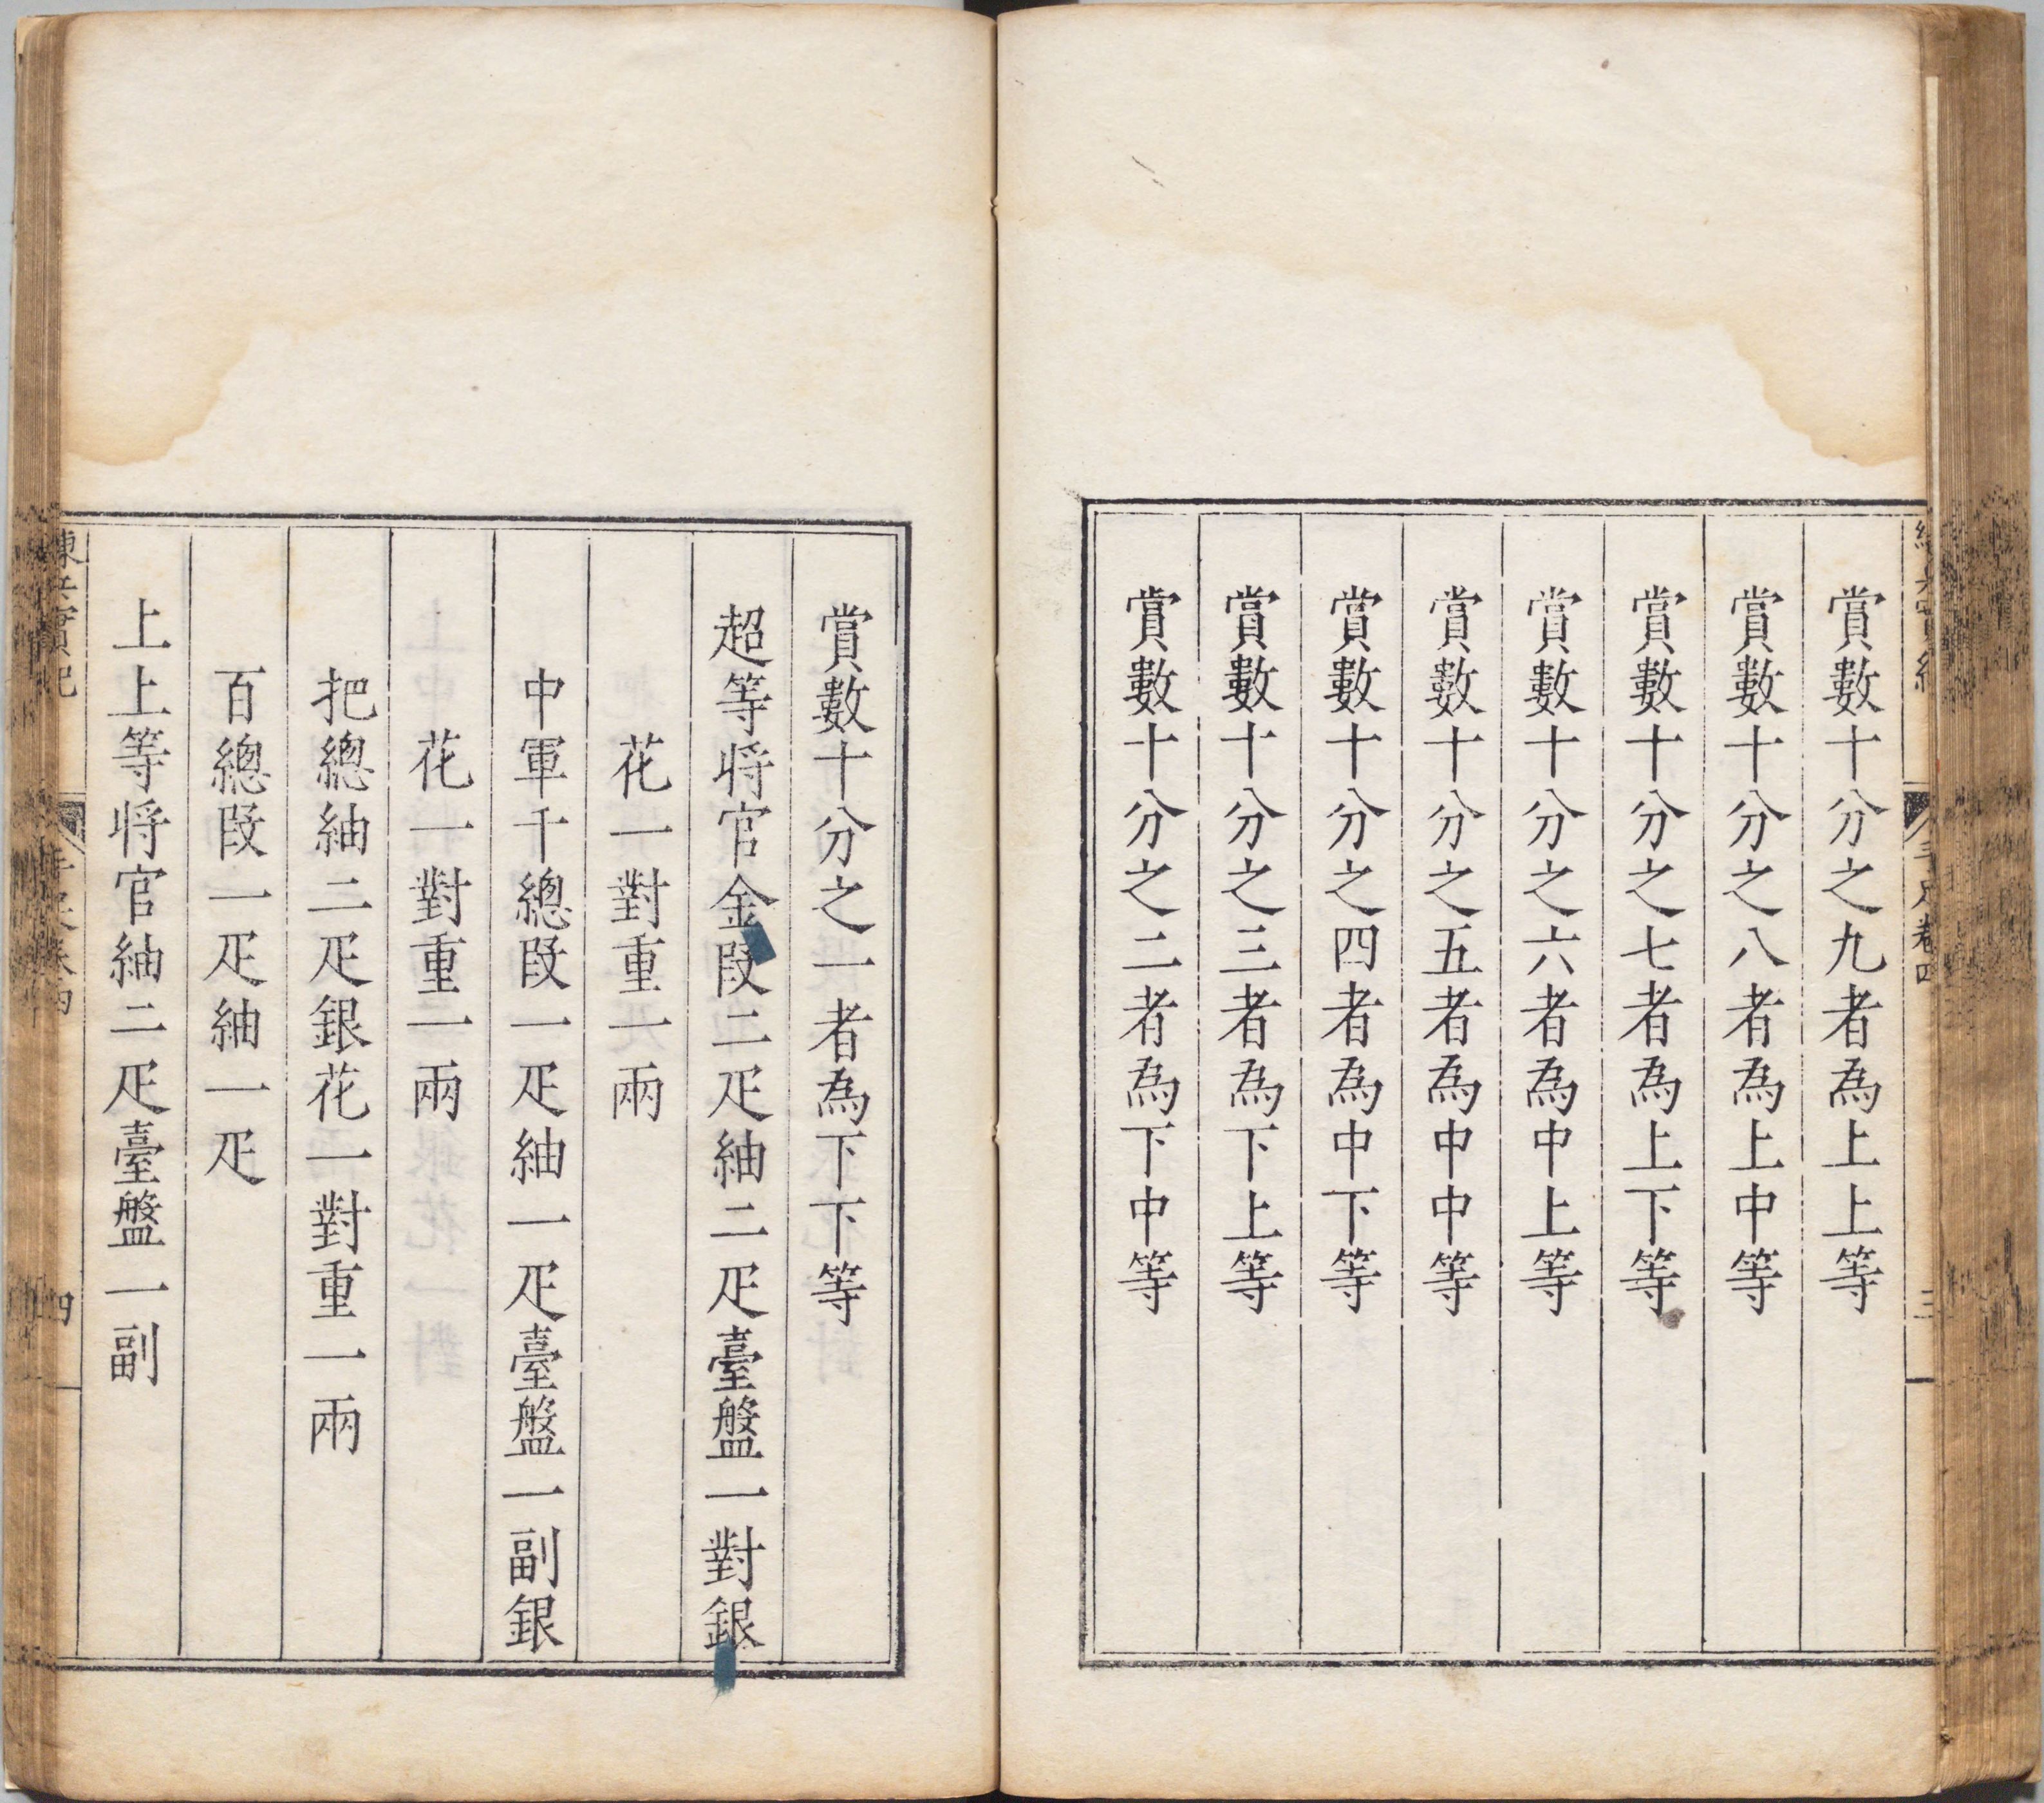 賞數十分之九者為上上等
賞數十分之八者為上中等
賞數十分之七者為上下等
賞數十分之六者為中上等
賞數十分之五者為中中等
賞數十分之四者為中下等
賞數十分之三者為下上等
賞數十分之二者為下中等
賞數十分之一者為下下等
超等将官金叚二疋紬二疋臺盤一對銀
花一對重一兩
中軍千總叚一疋紬一疋臺盤一副銀
花一對重一兩
把總紬二疋銀花一對重一兩
百總叚一疋紬一疋
上上等将官紬二疋臺盤一副
四